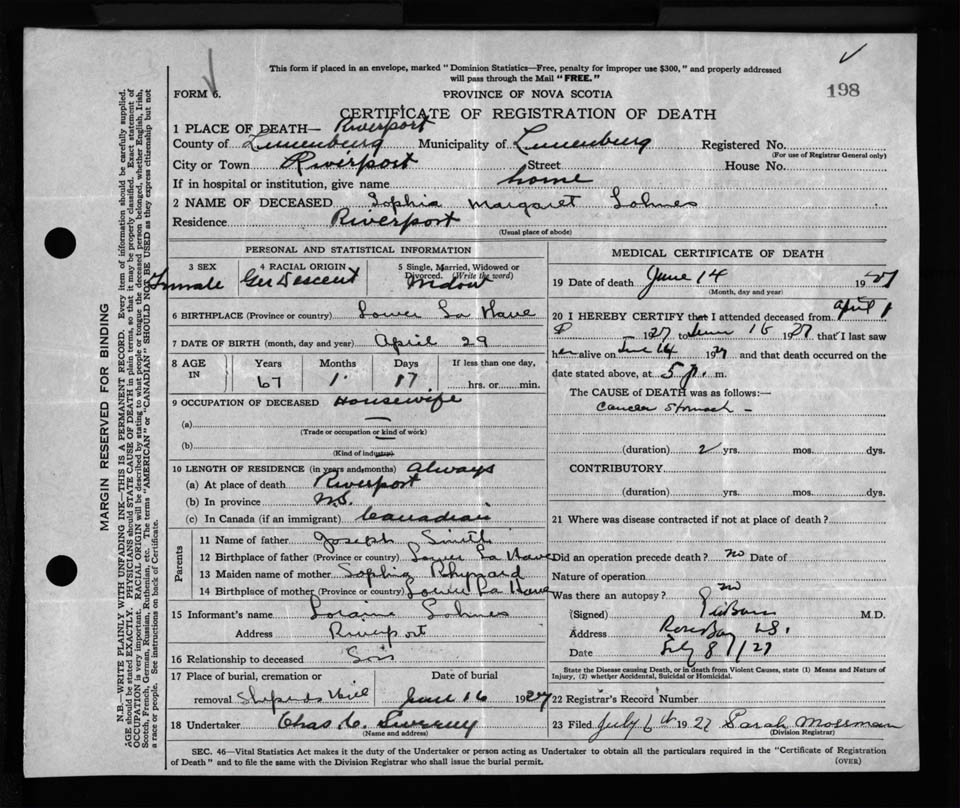 This form if placed in an envelope, marked "Dominion Statistics—Free, penalty for improper use $300," and properly addressed
will pass through the Mail "FREE."
FORM 6.
PROVINCE OF NOVA SCOTIA
198
CERTIFICATE OF REGISTRATION OF DEATH
1 PLACE OF DEATH— Riverport
County of Lunenburg Municipality of Lunenburg Registered No.
(For use of Registrar General only)
City or Town Riverport Street House No.
If in hospital or institution, give name home
2 NAME OF DECEASED Sophia Margaret Lohnes
Residence Riverport
(Usual place of abode)
MARGIN RESERVED FOR BINDING
N.B.—WRITE PLAINLY WITH UNFADING INK—THIS IS A PERMANENT RECORD. Every item of information should be carefully supplied.
AGE should be stated EXACTLY. PHYSICIANS should STATE CAUSE OF DEATH in plain terms, so that it may be properly classified. Exact statement of
OCCUPATION is very important. RACIAL ORIGIN will be described by stating to what people or tongue the deceased person belonged, whether English, Irish,
Scotch, French, German, Russian, Ruthenian, etc. The terms "AMERICAN" or "CANADIAN" SHOULD NOT BE USED as they express citizenship but not
a race or people. See instructions on back of Certificate.
PERSONAL AND STATISTICAL INFORMATION
3 SEX Female
4 RACIAL ORIGIN Ger Descent
5 Single, Married, Widowed or
Divorced. (Write the word)
Widow
6 BIRTHPLACE (Province or country) Lower La Have
7 DATE OF BIRTH (month, day and year) April 29
8 AGE IN Years Months Days If less than one day,
67 1 17 hrs. or min.
9 OCCUPATION OF DECEASED Housewife
(a)
(Trade or occupation or kind of work)
(b)
(Kind of industry)
10 LENGTH OF RESIDENCE (in years and months) always
(a) At place of death Riverport
(b) In province N.S.
(c) In Canada (if an immigrant) Canadian
Parents
11 Name of father Joseph Smith
12 Birthplace of father (Province or country) Lower La Have
13 Maiden name of mother Rhynard
14 Birthplace of mother (Province or country) Lower La Have
15 Informant's name Lohnes
Address Riverport
16 Relationship to deceased Son
17 Place of burial, cremation or Date of burial
removal June 16 1927
18 Undertaker Chas
(Name and address)
MEDICAL CERTIFICATE OF DEATH
19 Date of death June 14 1927
(Month, day and year)
20 I HEREBY CERTIFY that I attended deceased from April 1
1927 to June 1927 that I last saw
her alive on June 14 1927 and that death occurred on
date stated above, at 5 p. m.
The CAUSE of DEATH was as follows:—
Cancer Stomach —
(duration) 2 yrs. mos. dys.
CONTRIBUTORY
(duration) yrs. mos. dys.
21 Where was disease contracted if not at place of death?
Did an operation precede death? no Date of
Nature of operation
Was there an autopsy? no
(Signed) M.D.
Address Rose Bay
Date
State the Disease causing Death, or in death from Violent Causes, state (1) Means and Nature of
Injury, (2) whether Accidental, Suicidal or Homicidal.
22 Registrar's Record Number
23 Filed July 6th 1927 Sarah Mossman
(Division Registrar)
SEC. 46—Vital Statistics Act makes it the duty of the Undertaker or person acting as Undertaker to obtain all the particulars required in the "Certificate of Registration
of Death" and to file the same with the Division Registrar who shall issue the burial permit.
(OVER)